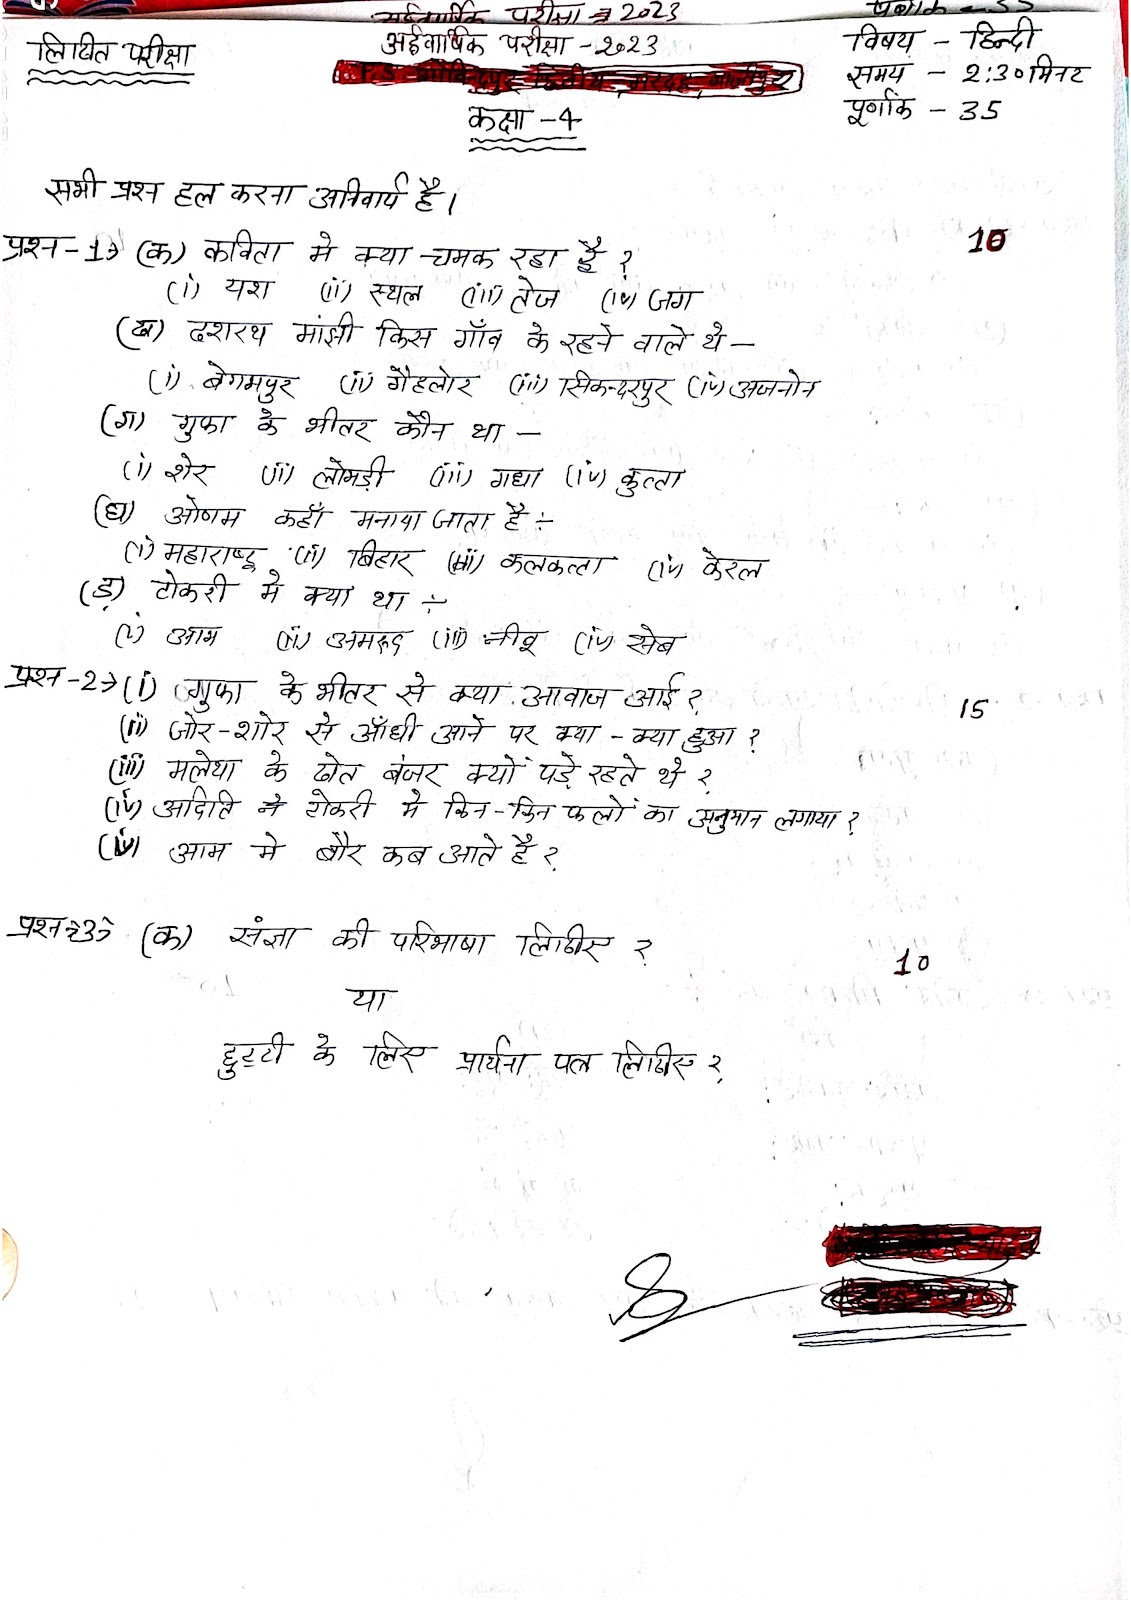 अर्द्धवार्षिक परीक्षा → 2023
लिखित परीक्षा
अर्द्धवार्षिक परीक्षा - 2023
विषय - हिन्दी
समय - 2:30 मिनट
कक्षा - 4
पूर्णांक - 35
सभी प्रश्न हल करना अनिवार्य है।
प्रश्न - 1→ (क) कविता मे क्या चमक रहा है ? 10
(i) यश (ii) स्थल (iii) तेज (iv) जग
(ख) दशरथ मांझी किस गाँव के रहने वाले थे —
(i) बेगमपुर (ii) गैहलोर (iii) सिकन्दरपुर (iv) अजनोन
(ग) गुफा के भीतर कौन था —
(i) शेर (ii) लोमड़ी (iii) गधा (iv) कुत्ता
(घ) ओणम कहाँ मनाया जाता है ÷
(i) महाराष्ट्र (ii) बिहार (iii) कलकत्ता (iv) केरल
(ड़) टोकरी मे क्या था ÷
(i) आम (ii) अमरूद (iii) नीबू (iv) सेब
प्रश्न - 2→ (i) गुफा के भीतर से क्या आवाज आई ? 15
(ii) जोर - शोर से आँधी आने पर क्या - क्या हुआ ?
(iii) मलेथा के खेत बंजर क्यों पड़े रहते थे ?
(iv) अदिति ने टोकरी मे किन - किन फलों का अनुमान लगाया ?
(v) आम मे बौर कब आते है ?
प्रश्न→3→ (क) संज्ञा की परिभाषा लिखिए ? 10
या
छुट्टी के लिए प्रार्थना पत्र लिखिए ?